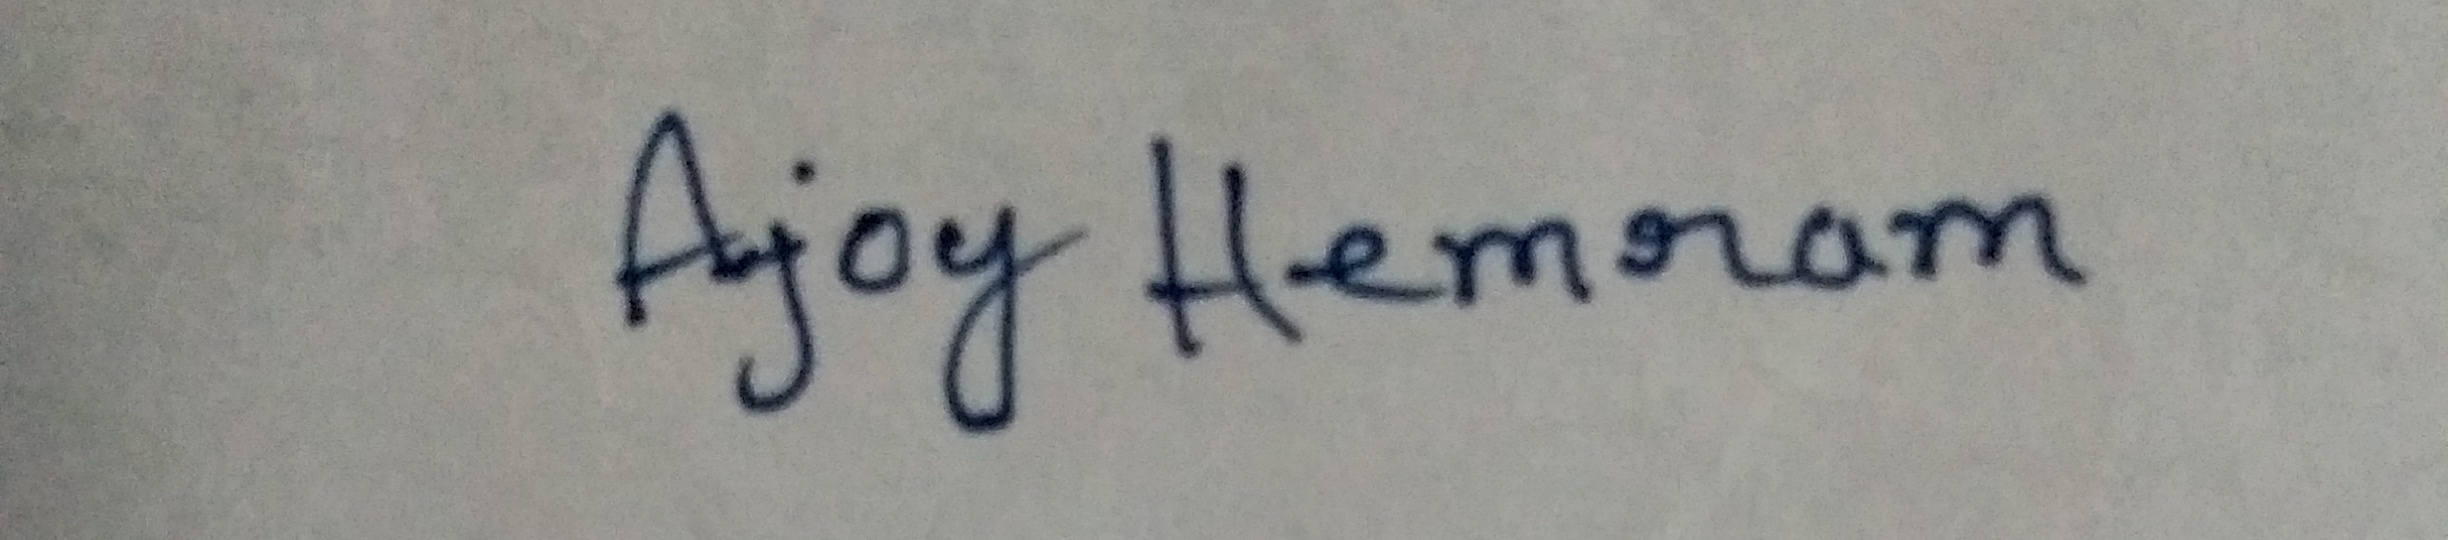 Ajoy Hemram